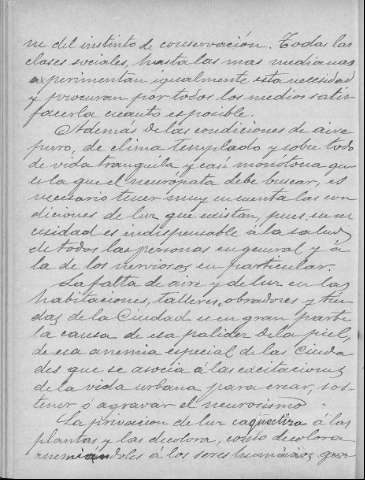 ne del instinto de conservación. Todas las
clases sociales, hasta las mas medianas
experimentan igualmente esta necesidad
y procuran por todos los medios satis-
facerla cuanto es posible.
Además de las condiciones de aire
puro, de clima templado y sobre todo
de vida tranquila y casi monótona que
es la que el neurópata debe buscar, es
necesario tener muy en cuenta las con
diciones de luz que existan, pues su ne
cesidad es indispensable á la salud
de todas las personas en general y á
la de los nerviosos en particular.
La falta de aire y de luz en las
habitaciones, talleres, obradores y tien
das de la Ciudad es en gran parte
la causa de esa palidez de la piel,
de esa anemia especial de las Ciuda
des que se asocia á las excitaciones
de la vida urbana para crear, sos-
tener ó agravar el neurosismo.
La privacion de luz caquectiza á las
plantas y las decolora, como decolora
anemiándoles á los seres humanos que